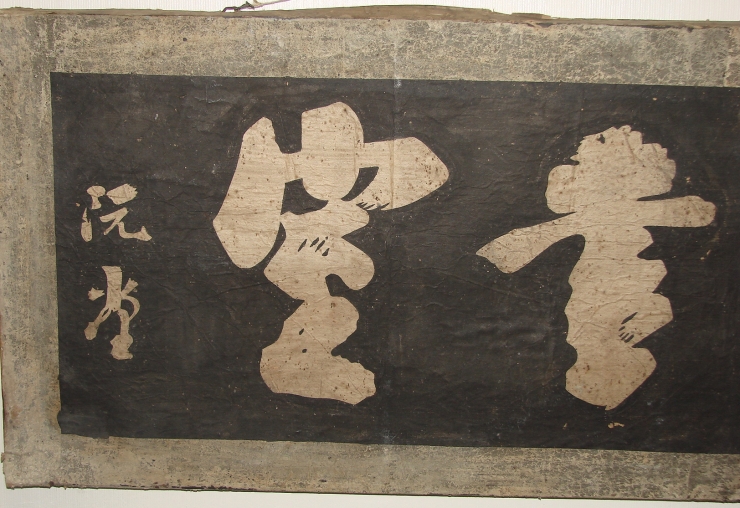 書堂
阮堂